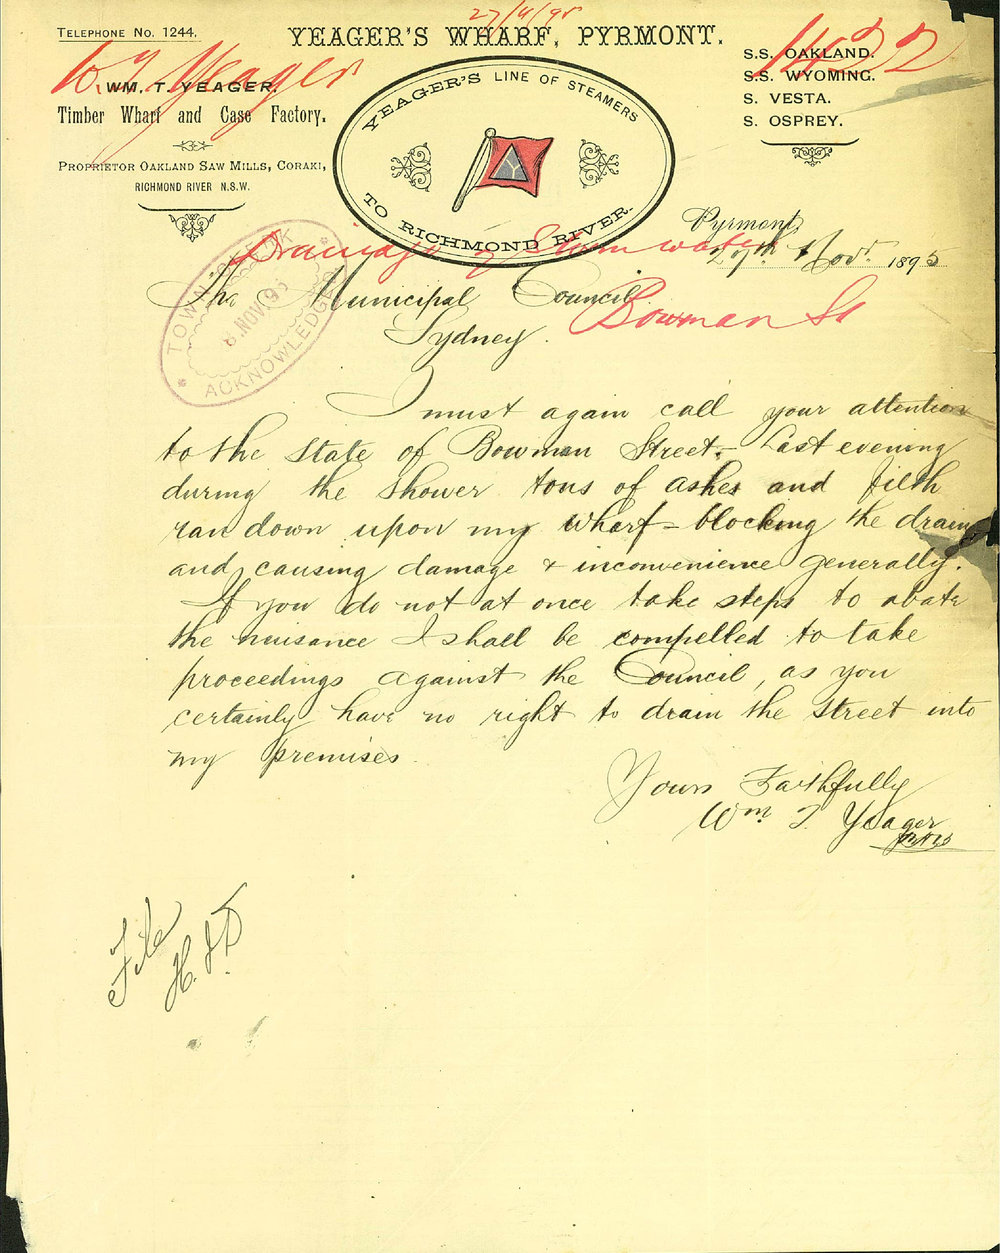 27/11/95
TELEPHONE NO. 1244.
YEAGER'S WHARF, PYRMONT.
W. T. Yeager
1422
WM. T. YEAGER.
Timber Wharf and Case Factory.
PROPRIETOR OAKLAND SAW MILLS, CORAKI,
RICHMOND RIVER N.S.W.
YEAGER'S LINE OF STEAMERS
Y
TO RICHMOND RIVER.
S.S. OAKLAND.
S.S. WYOMING.
S. VESTA.
S. OSPREY.
Pyrmont,
27th Novr. 1895
Drainage of Storm water
Bowman St
TOWN CLERK
NOV. 95
ACKNOWLEDGED
The Municipal Council
Sydney.
I must again call your attention
to the state of Bowman Street. – Last evening
during the shower tons of ashes and filth
ran down upon my wharf – blocking the drains
and causing damage & inconvenience generally.
If you do not at once take steps to abate
the nuisance I shall be compelled to take
proceedings against the Council, as you
certainly have no right to drain the street into
my premises.
Yours Faithfully
Wm T. Yeager
File